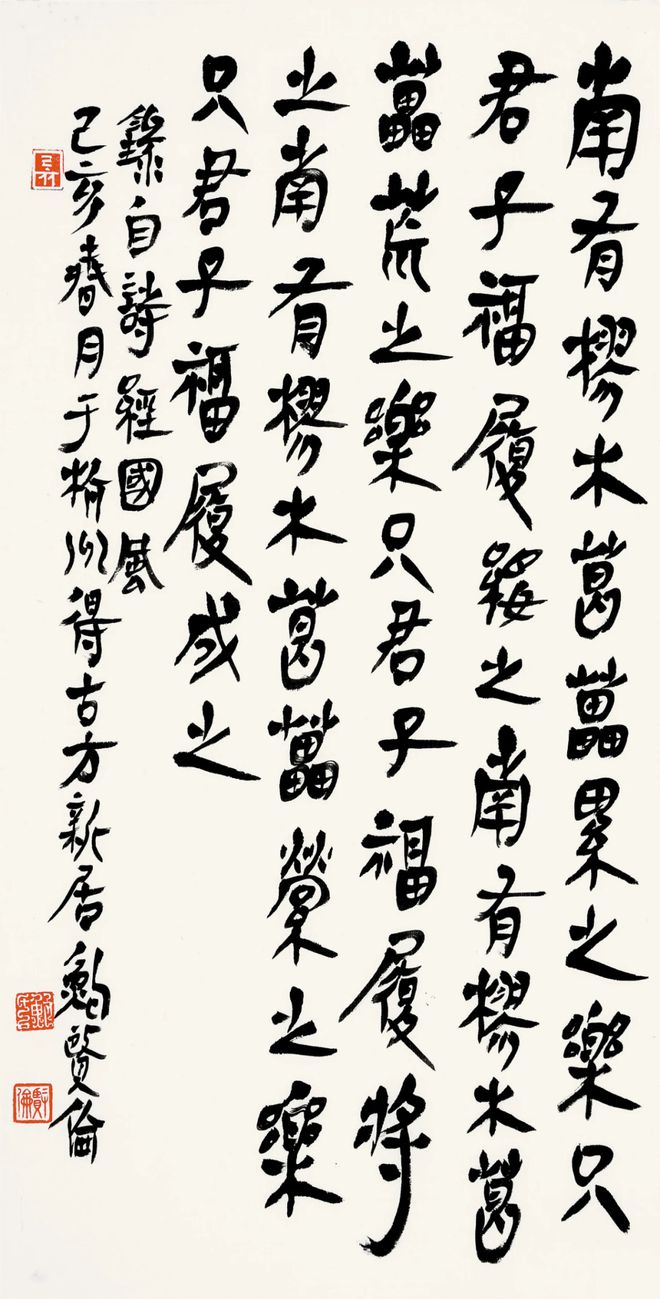 南有樛木葛藟累之樂只
君子福履綏之南有樛木葛
藟荒之樂只君子福履將
之南有樛木葛藟縈之樂
只君子福履成之
錄自詩經國風
己亥春月于州得古方新居鮑賢倫
己亥
賢倫